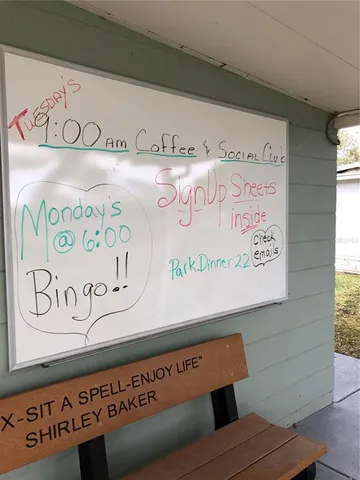 Tuesday's
9:00 AM Coffee & Social Club
SignUp Sheets
inside
Monday's
@ 6:00
Bingo!!
Park Dinner 22
Check
emails
X-SIT A SPELL-ENJOY LIFE"
SHIRLEY BAKER